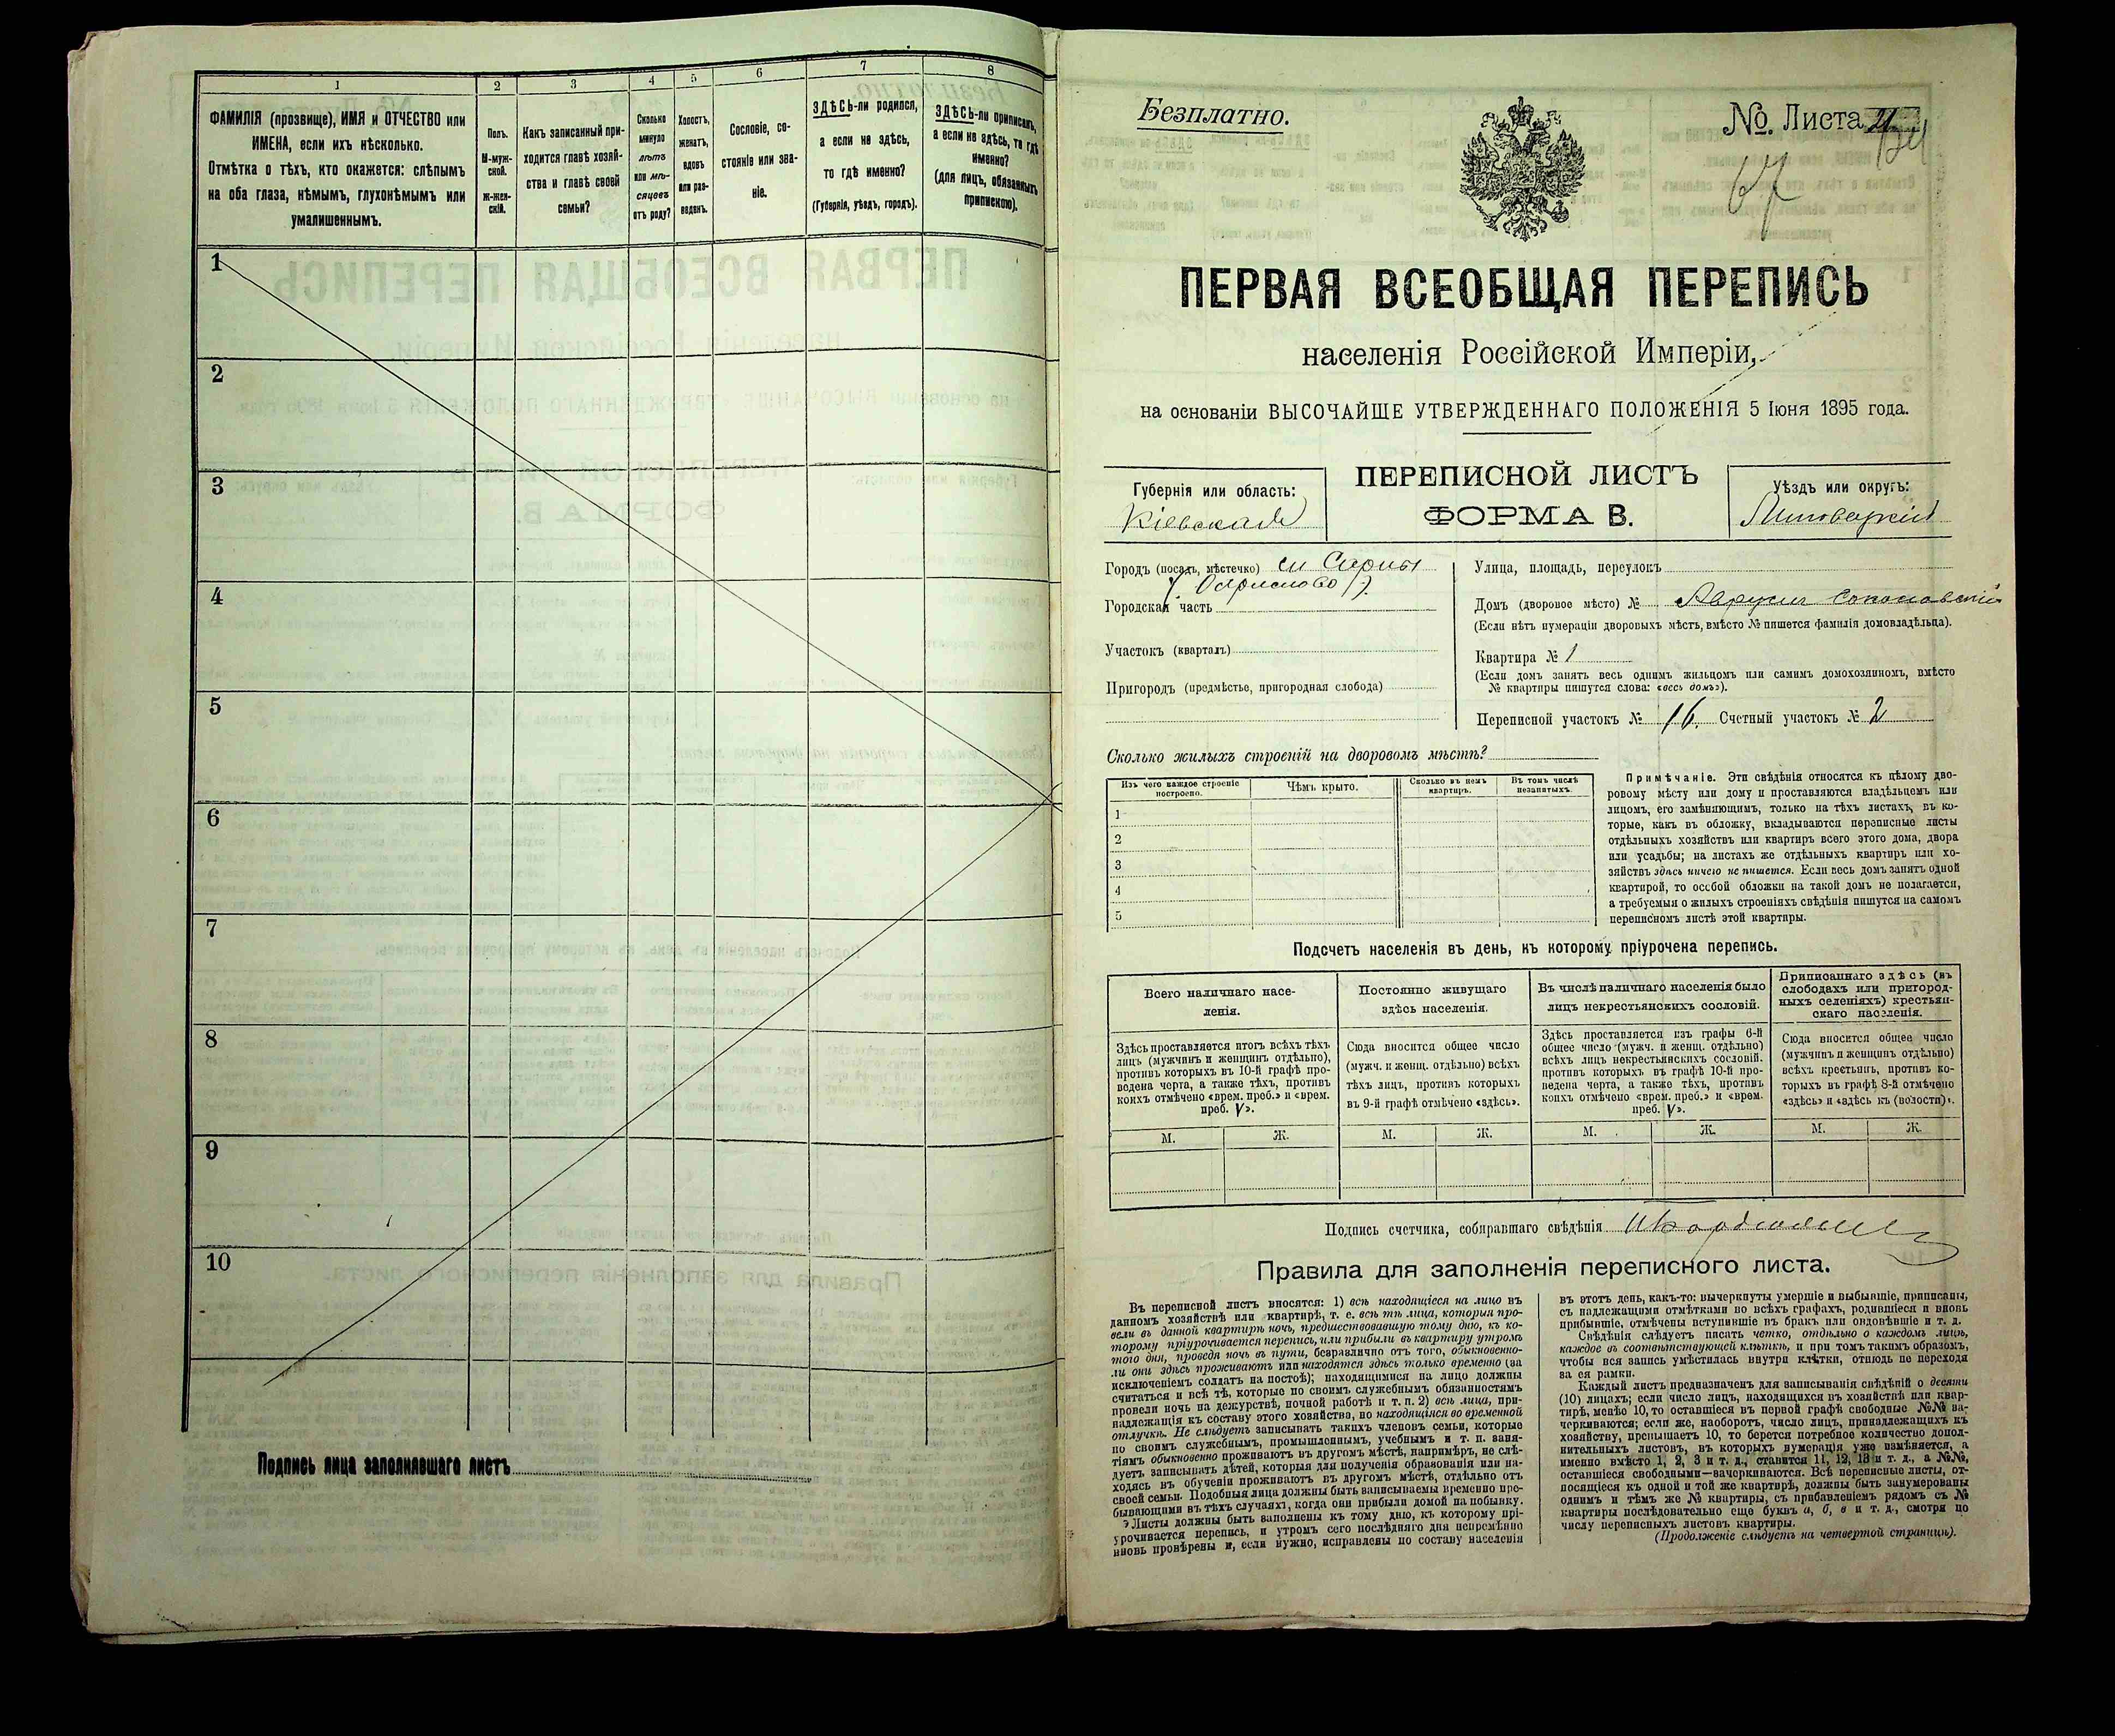 1
2
3
4
5
6
7
8
ФАМИЛІЯ (прозвище), ИМЯ и ОТЧЕСТВО или
ИМЕНА, если ихъ нѣсколько.
Отмѣтка о тѣхъ, кто окажется: слѣпымъ
на оба глаза, нѣмымъ, глухонѣмымъ или
умалишеннымъ.
Полъ.
М-муж-
ской.
ж-жен-
скій.
Какъ записанный при-
ходится главѣ хозяй-
ства и главѣ своей
семьи?
Сколько
минуло
лѣтъ
или мѣ-
сяцевъ
отъ роду?
Холостъ,
женатъ,
вдовъ
или раз-
веденъ.
Сословіе, со-
стояніе или зва-
ніе.
ЗДѢСЬ-ли родился,
а если не здѣсь,
то гдѣ именно?
(Губернія, уѣздъ, городъ).
ЗДѢСЬ-ли приписанъ,
а если не здѣсь, то гдѣ
именно?
(для лицъ, обязанныхъ
припискою).
1
2
3
4
5
6
7
8
9
10
Подпись лица заполнявшаго листъ
Безплатно.
№. Листа 21
67
ПЕРВАЯ ВСЕОБЩАЯ ПЕРЕПИСЬ
населенія Россійской Имперіи,
на основаніи ВЫСОЧАЙШЕ УТВЕРЖДЕННАГО ПОЛОЖЕНІЯ 5 Іюня 1895 года.
Губернія или область:
Кіевская
ПЕРЕПИСНОЙ ЛИСТЪ
ФОРМА В.
Уѣздъ или округъ:
Липовецкій
Городъ (посадъ, мѣстечко) см Сарны
Городская часть
Участокъ (кварталъ)
Пригородъ (предмѣстье, пригородная слобода)
Улица, площадь, переулокъ
Домъ (дворовое мѣсто) №
(Если нѣтъ нумераціи дворовыхъ мѣстъ, вмѣсто № пишется фамилія домовладѣльца).
Квартира № 1
(Если домъ занятъ весь однимъ жильцомъ или самимъ домохозяиномъ, вмѣсто
№ квартиры пишутся слова: «весь домъ»).
Переписной участокъ № 16. Счетный участокъ № 2
Сколько жилыхъ строеній на дворовомъ мѣстѣ?
Изъ чего каждое строеніе
построено.
Чѣмъ крыто.
Сколько въ немъ
квартиръ.
Въ томъ числѣ
незанятыхъ.
1
2
3
4
5
Примѣчаніе. Эти свѣдѣнія относятся къ цѣлому дво-
ровому мѣсту или дому и проставляются владѣльцемъ или
лицомъ, его замѣняющимъ, только на тѣхъ листахъ, въ ко-
торые, какъ въ обложку, вкладываются переписные листы
отдѣльныхъ хозяйствъ или квартиръ всего этого дома, двора
или усадьбы; на листахъ же отдѣльныхъ квартиръ или хо-
зяйствъ здѣсь ничего не пишется. Если весь домъ занятъ одной
квартирой, то особой обложки на такой домъ не полагается,
а требуемыя о жилыхъ строеніяхъ свѣдѣнія пишутся на самомъ
переписномъ листѣ этой квартиры.
Подсчетъ населенія въ день, къ которому пріурочена перепись.
Всего наличнаго насе-
ленія.
Постоянно живущаго
здѣсь населенія.
Въ числѣ наличнаго населенія было
лицъ некрестьянскихъ сословій.
Приписаннаго здѣсь (въ
слободахъ или пригород-
ныхъ селеніяхъ) крестьян-
скаго населенія.
Здѣсь проставляется итогъ всѣхъ тѣхъ
лицъ (мужчинъ и женщинъ отдѣльно),
противъ которыхъ въ 10-й графѣ про-
ведена черта, а также тѣхъ, противъ
коихъ отмѣчено «врем. преб.» и «врем.
преб. V».
Сюда вносится общее число
(мужч. и женщ. отдѣльно) всѣхъ
тѣхъ лицъ, противъ которыхъ
въ 9-й графѣ отмѣчено «здѣсь».
Здѣсь проставляется изъ графы 6-й
общее число (мужч. и женщ. отдѣльно)
всѣхъ лицъ некрестьянскихъ сословій,
противъ которыхъ въ графѣ 10-й про-
ведена черта, а также тѣхъ, противъ
коихъ отмѣчено «врем. преб.» и «врем.
преб. V».
Сюда вносится общее число
(мужчинъ и женщинъ отдѣльно)
всѣхъ крестьянъ, противъ ко-
торыхъ въ графѣ 8-й отмѣчено
«здѣсь» и «здѣсь къ (волости)».
М. Ж. М. Ж. М. Ж. М. Ж.
Подпись счетчика, собиравшаго свѣдѣнія
Правила для заполненія переписного листа.
Въ переписной листъ вносятся: 1) всѣ находящіеся на лицо въ
данномъ хозяйствѣ или квартирѣ, т. е. всѣ тѣ лица, которыя про-
вели въ данной квартирѣ ночь, предшествовавшую тому дню, къ ко-
торому пріурочивается перепись, или прибыли въ квартиру утромъ
того дня, проведя ночь въ пути, безразлично отъ того, обыкновенно-
ли они здѣсь проживаютъ или находятся здѣсь только временно (за
исключеніемъ солдатъ на постоѣ); находящимися на лицо должны
считаться и всѣ тѣ, которые по своимъ служебнымъ обязанностямъ
провели ночь на дежурствѣ, ночной работѣ и т. п. 2) всѣ лица, при-
надлежащія къ составу этого хозяйства, но находящіяся во временной
отлучкѣ. Не слѣдуетъ записывать такихъ членовъ семьи, которые
по своимъ служебнымъ, промышленнымъ, учебнымъ и т. п. заня-
тіямъ обыкновенно проживаютъ въ другомъ мѣстѣ, напримѣръ, не слѣ-
дуетъ записывать дѣтей, которыя для полученія образованія или на-
ходясь въ обученіи проживаютъ въ другомъ мѣстѣ, отдѣльно отъ
своей семьи. Подобныя лица должны быть записываемы временно пре-
бывающими въ тѣхъ случаяхъ, когда они прибыли домой на побывку.
Листы должны быть заполнены къ тому дню, къ которому прі-
урочивается перепись, и утромъ сего послѣдняго дня непремѣнно
вновь провѣрены и, если нужно, исправлены по составу населенія
въ этотъ день, какъ-то: вычеркнуты умершіе и выбывшіе, приписаны,
съ надлежащими отмѣтками во всѣхъ графахъ, родившіеся и вновь
прибывшіе, отмѣчены вступившіе въ бракъ или овдовѣвшіе и т. д.
Свѣдѣнія слѣдуетъ писать четко, отдѣльно о каждомъ лицѣ,
каждое въ соотвѣтствующей клѣткѣ, и при томъ такимъ образомъ,
чтобы вся запись умѣстилась внутри клѣтки, отнюдь не переходя
за ея рамки.
Каждый листъ предназначенъ для записыванія свѣдѣній о десяти
(10) лицахъ; если число лицъ, находящихся въ хозяйствѣ или квар-
тирѣ, менѣе 10, то оставшіеся въ первой графѣ свободные №№ за-
черкиваются; если же, наоборотъ, число лицъ, принадлежащихъ къ
хозяйству, превышаетъ 10, то берется потребное количество допол-
нительныхъ листовъ, въ которыхъ нумерація уже измѣняется, а
именно вмѣсто 1, 2, 3 и т. д., ставится 11, 12, 13 и т. д., а №№,
оставшіеся свободными—зачеркиваются. Всѣ переписные листы, от-
носящіеся къ одной и той же квартирѣ, должны быть занумерованы
однимъ и тѣмъ же № квартиры, съ прибавленіемъ рядомъ съ №
квартиры послѣдовательно еще буквъ а, б, в и т. д., смотря по
числу переписныхъ листовъ квартиры.
(Продолженіе слѣдуетъ на четвертой страницѣ).